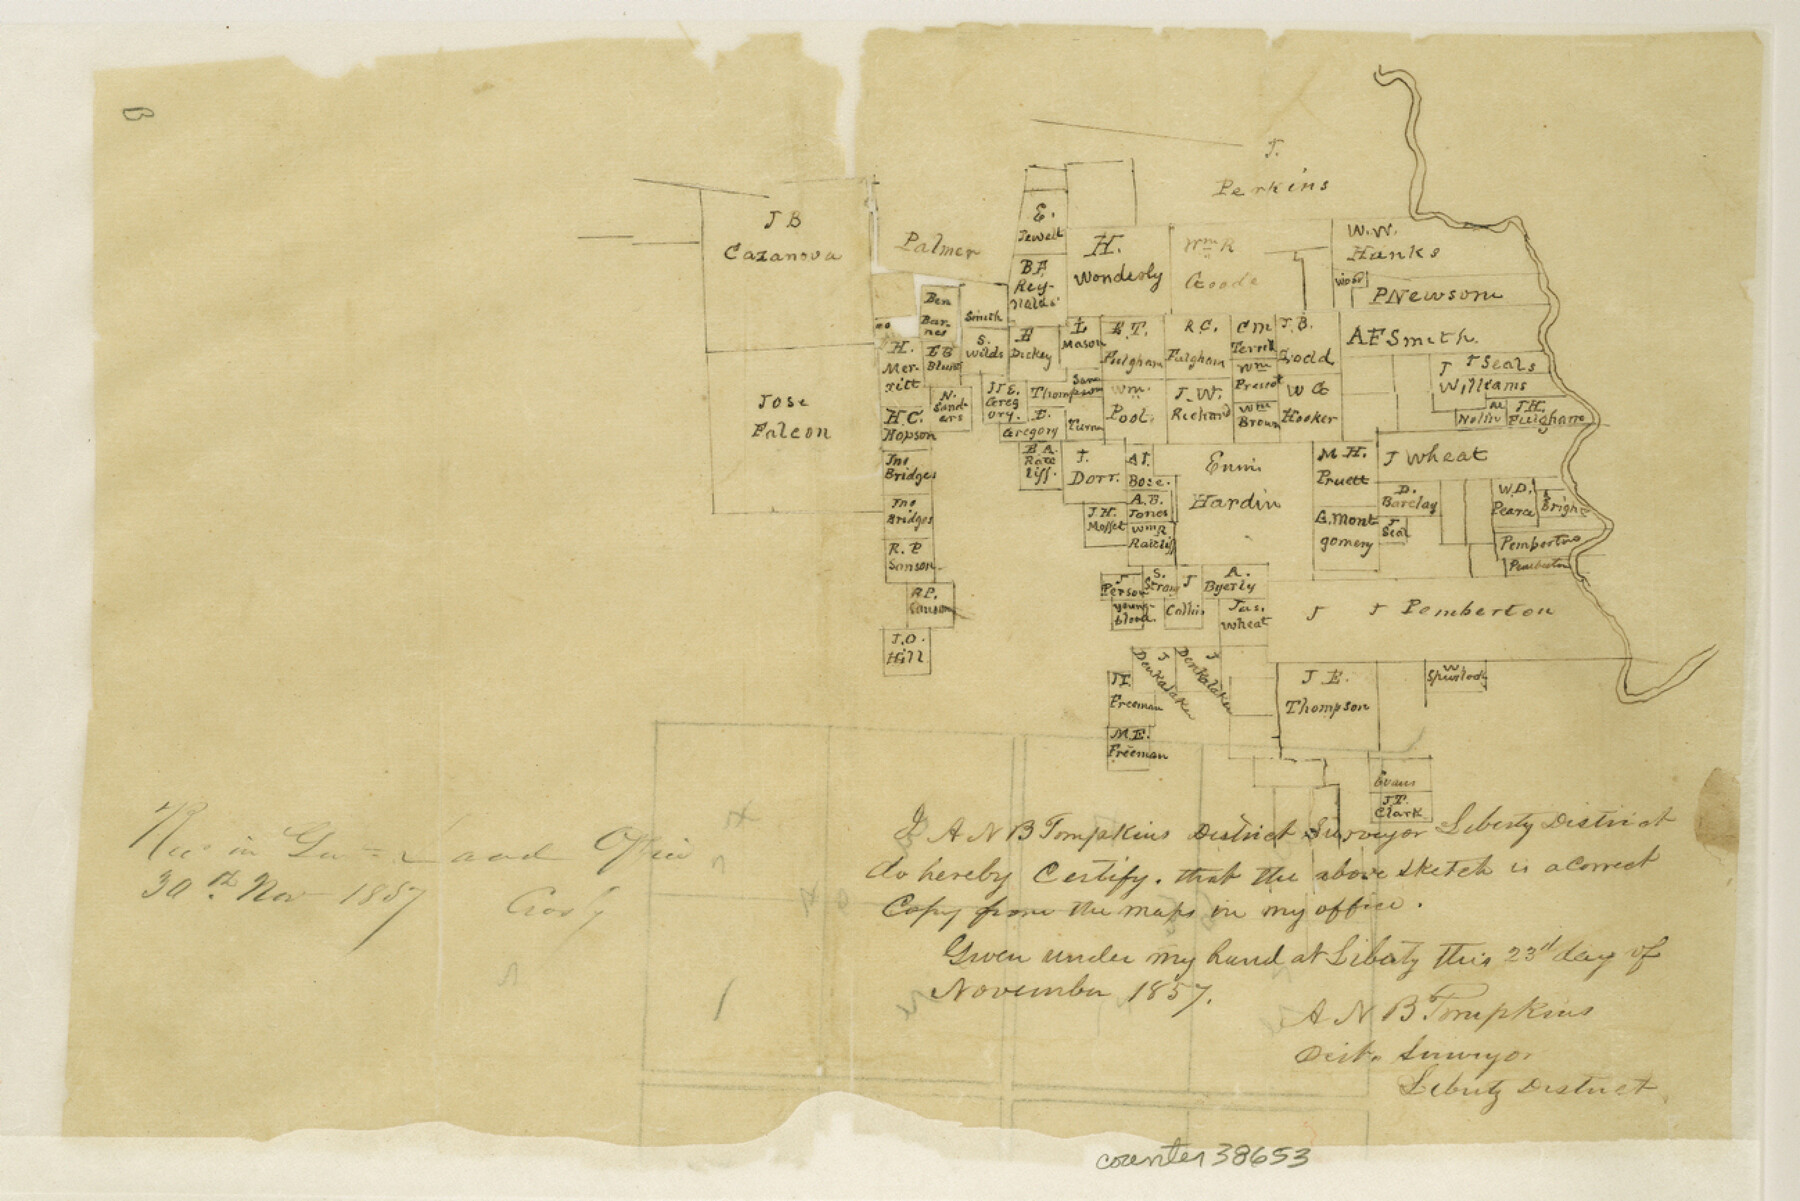 B
J.
Perkins
J B
Cazanova
Palmer
E.
Jewett
H.
Wonderly
Wm R
Goode
W. W.
Hanks
Wood
P Newsom
B. F.
Rey-
nalds
Ben
Bar-
nes
Smith
S.
Wilds
E
Dickey
L
Mason
E. T.
Fulgham
R. C.
Fulgham
C M
Terrel
J. B.
A F Smith.
H.
Mer-
ritt
E B
Blunt
N.
Sand-
ers
H E.
Greg
ory.
Sam
Thompson
E.
Gregory
Turner
Wm.
Pool
J. W.
Richard
Wm
Prewot
Wm
Brown
W G
Hooker
J J Seals
Williams
Nolin
J. H.
Fulgham
Jose
Falcon
H. C.
Hopson
Jno
Bridges
Jno
Bridges
R. P
Sanson
R. P.
Sanson
J. O.
Hill
B A.
Rate
liff.
J.
Dorr.
A J.
Bose.
A. B.
Jones
J. H.
Moffet
Wm R
Ratliff
Hardin
M. H.
Pruett
J Wheat
D.
Barclay
W. D.
Pearce
Bright
G. Mont
gomery
J
Seal
Pemberton
Pemberton
J
Person
S.
Strong
J
Collins
A.
Byerly
Young-
blood.
Jas.
Wheat
J J Pemberton
J
Donkalaker
J
Donkalaker
Freeman
M. E.
Freeman
J E.
Thompson
W
Spurlock
Evans
J. T.
Clark
I A N B Tompkins District Surveyor Liberty District
do hereby Certify. that the above sketch is a correct
Copy from the maps in my office.
Given under my hand at Liberty this 23d day of
November 1857.
A N B Tompkins
Dist. Surveyor
Liberty District
Rec in Gen = Land Office
30th. Nov 1857
Crosby
counter 38653